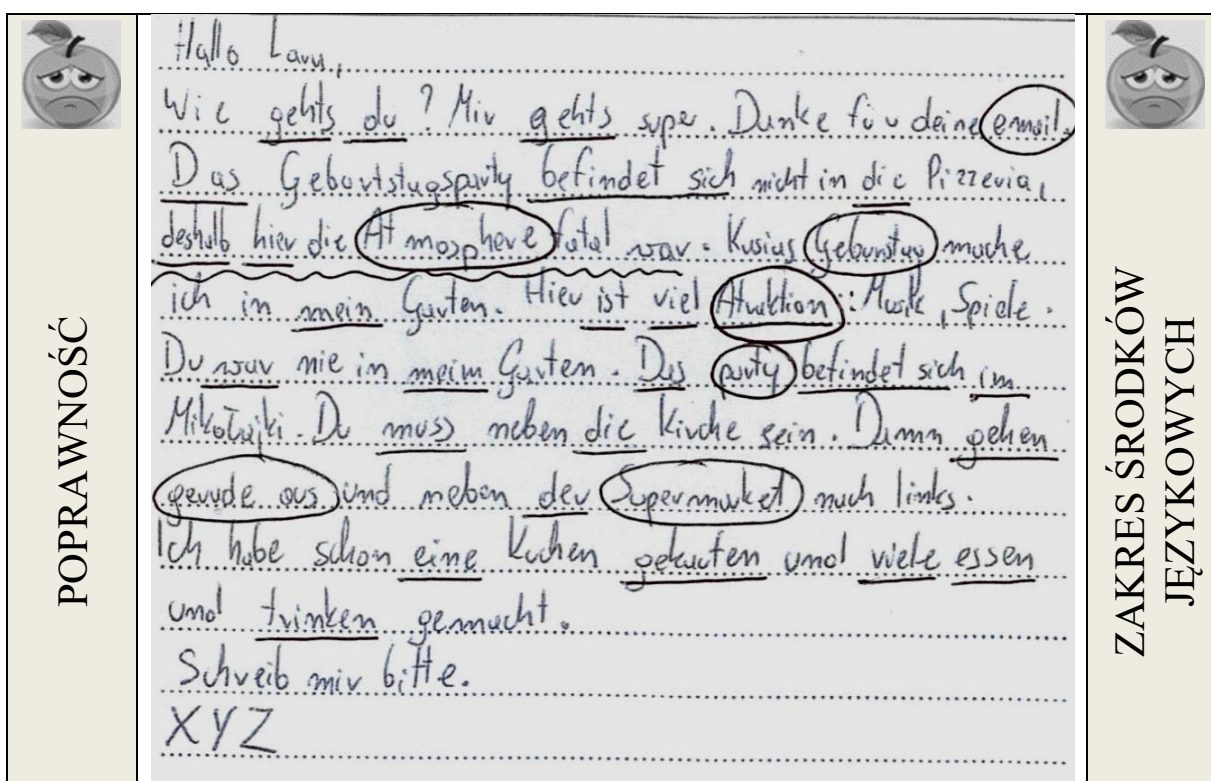 POPRAWNOŚĆ
Hallo Lara,
Wie gehts du? Mir gehts super. Danke für deine email.
Das Geburtstagsparty befindet sich nicht in die Pizzeria,
deshalb hier die Atmosphere fatal war. Kusias Geburstag mache
ich in mein Garten. Hier ist viel Atraktion: Musik, Spiele.
Du war nie in meim Garten. Das party befindet sich im
Mikołajki. Du muss neben die Kirche sein. Dann gehen
gerade aus und neben der Supermarket nach links.
Ich habe schon eine Kuchen gekauten und viele essen
und trinken gemacht.
Schreib mir bitte.
XYZ
ZAKRES ŚRODKÓW
JĘZYKOWYCH